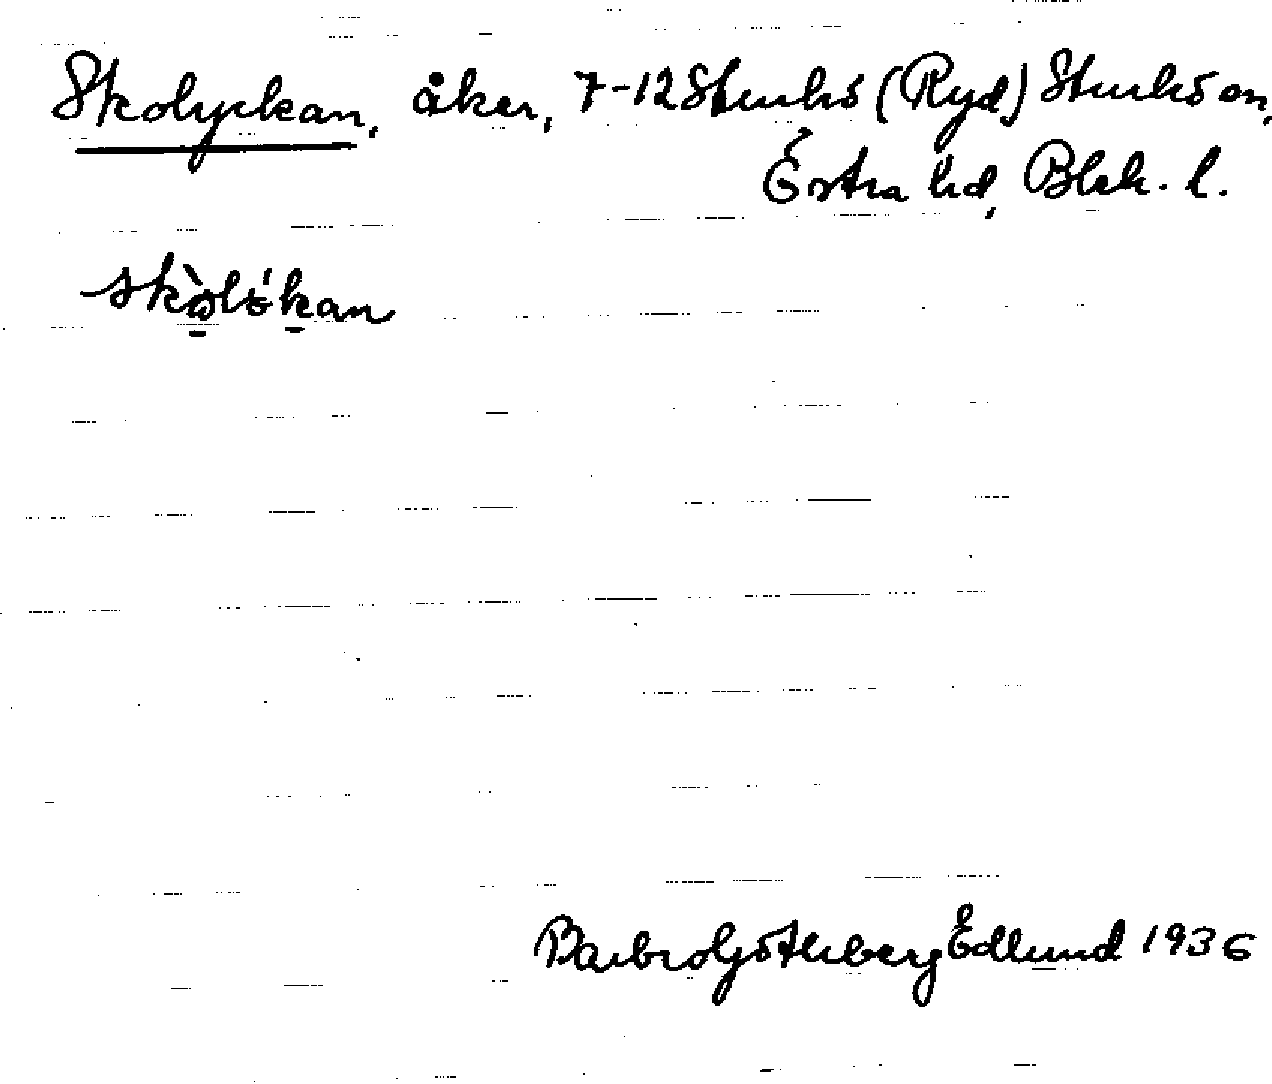 Skolyckan, åker, 7-12 Sturkö (Ryd) Sturkö sn,
Östra hd, Blek. l.
skòlökan
Barbro Götherberg Edlund 1936